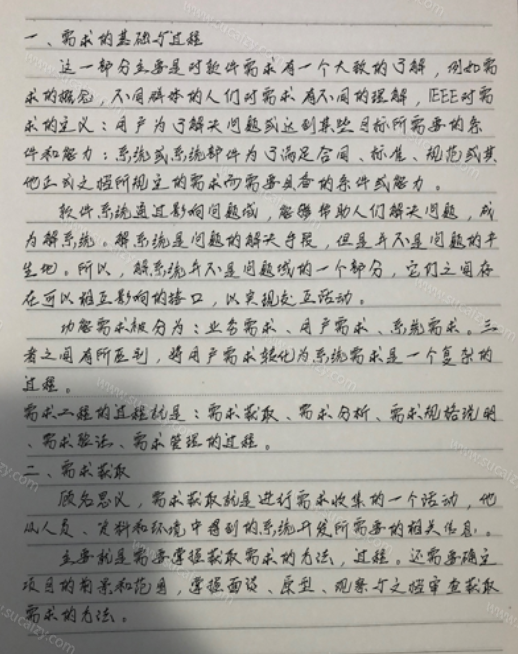 一、需求的基础与过程
这一部分主要是对软件需求有一个大致的了解，例如需
求的概念，不同群体的人们对需求有不同的理解，IEEE对需
求的定义：用户为了解决问题或达到某些目标所需要的条
件和能力；系统或系统部件为了满足合同、标准、规范或其
他正式文档所规定的需求而需要具备的条件或能力。
软件系统通过影响问题域，能够帮助人们解决问题，成
为解系统。解系统是问题的解决手段，但是并不是问题的产
生地。所以，解系统并不是问题域的一个部分，它们之间存
在可以相互影响的接口，以实现交互活动。
功能需求被分为：业务需求、用户需求、系统需求。三
者之间有所区别，将用户需求转化为系统需求是一个复杂的
过程。
需求工程的过程就是：需求获取、需求分析、需求规格说明
、需求验证、需求管理的过程。
二、需求获取
顾名思义，需求获取就是进行需求收集的一个活动，他
从人员、资料和环境中得到的系统开发所需要的相关信息。
主要就是需要掌握获取需求的方法，过程。还需要确定
项目的前景和范围，掌握面谈、原型、观察与文档审查获取
需求的方法。
www.sucaizy.com